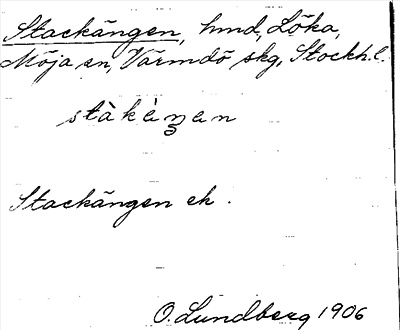 Stackängen, hmd, Löka,
Möja sn, Värmdö skg, Stockh. l.
stàkèŋen
Stackängen ek.
O. Lundberg 1906